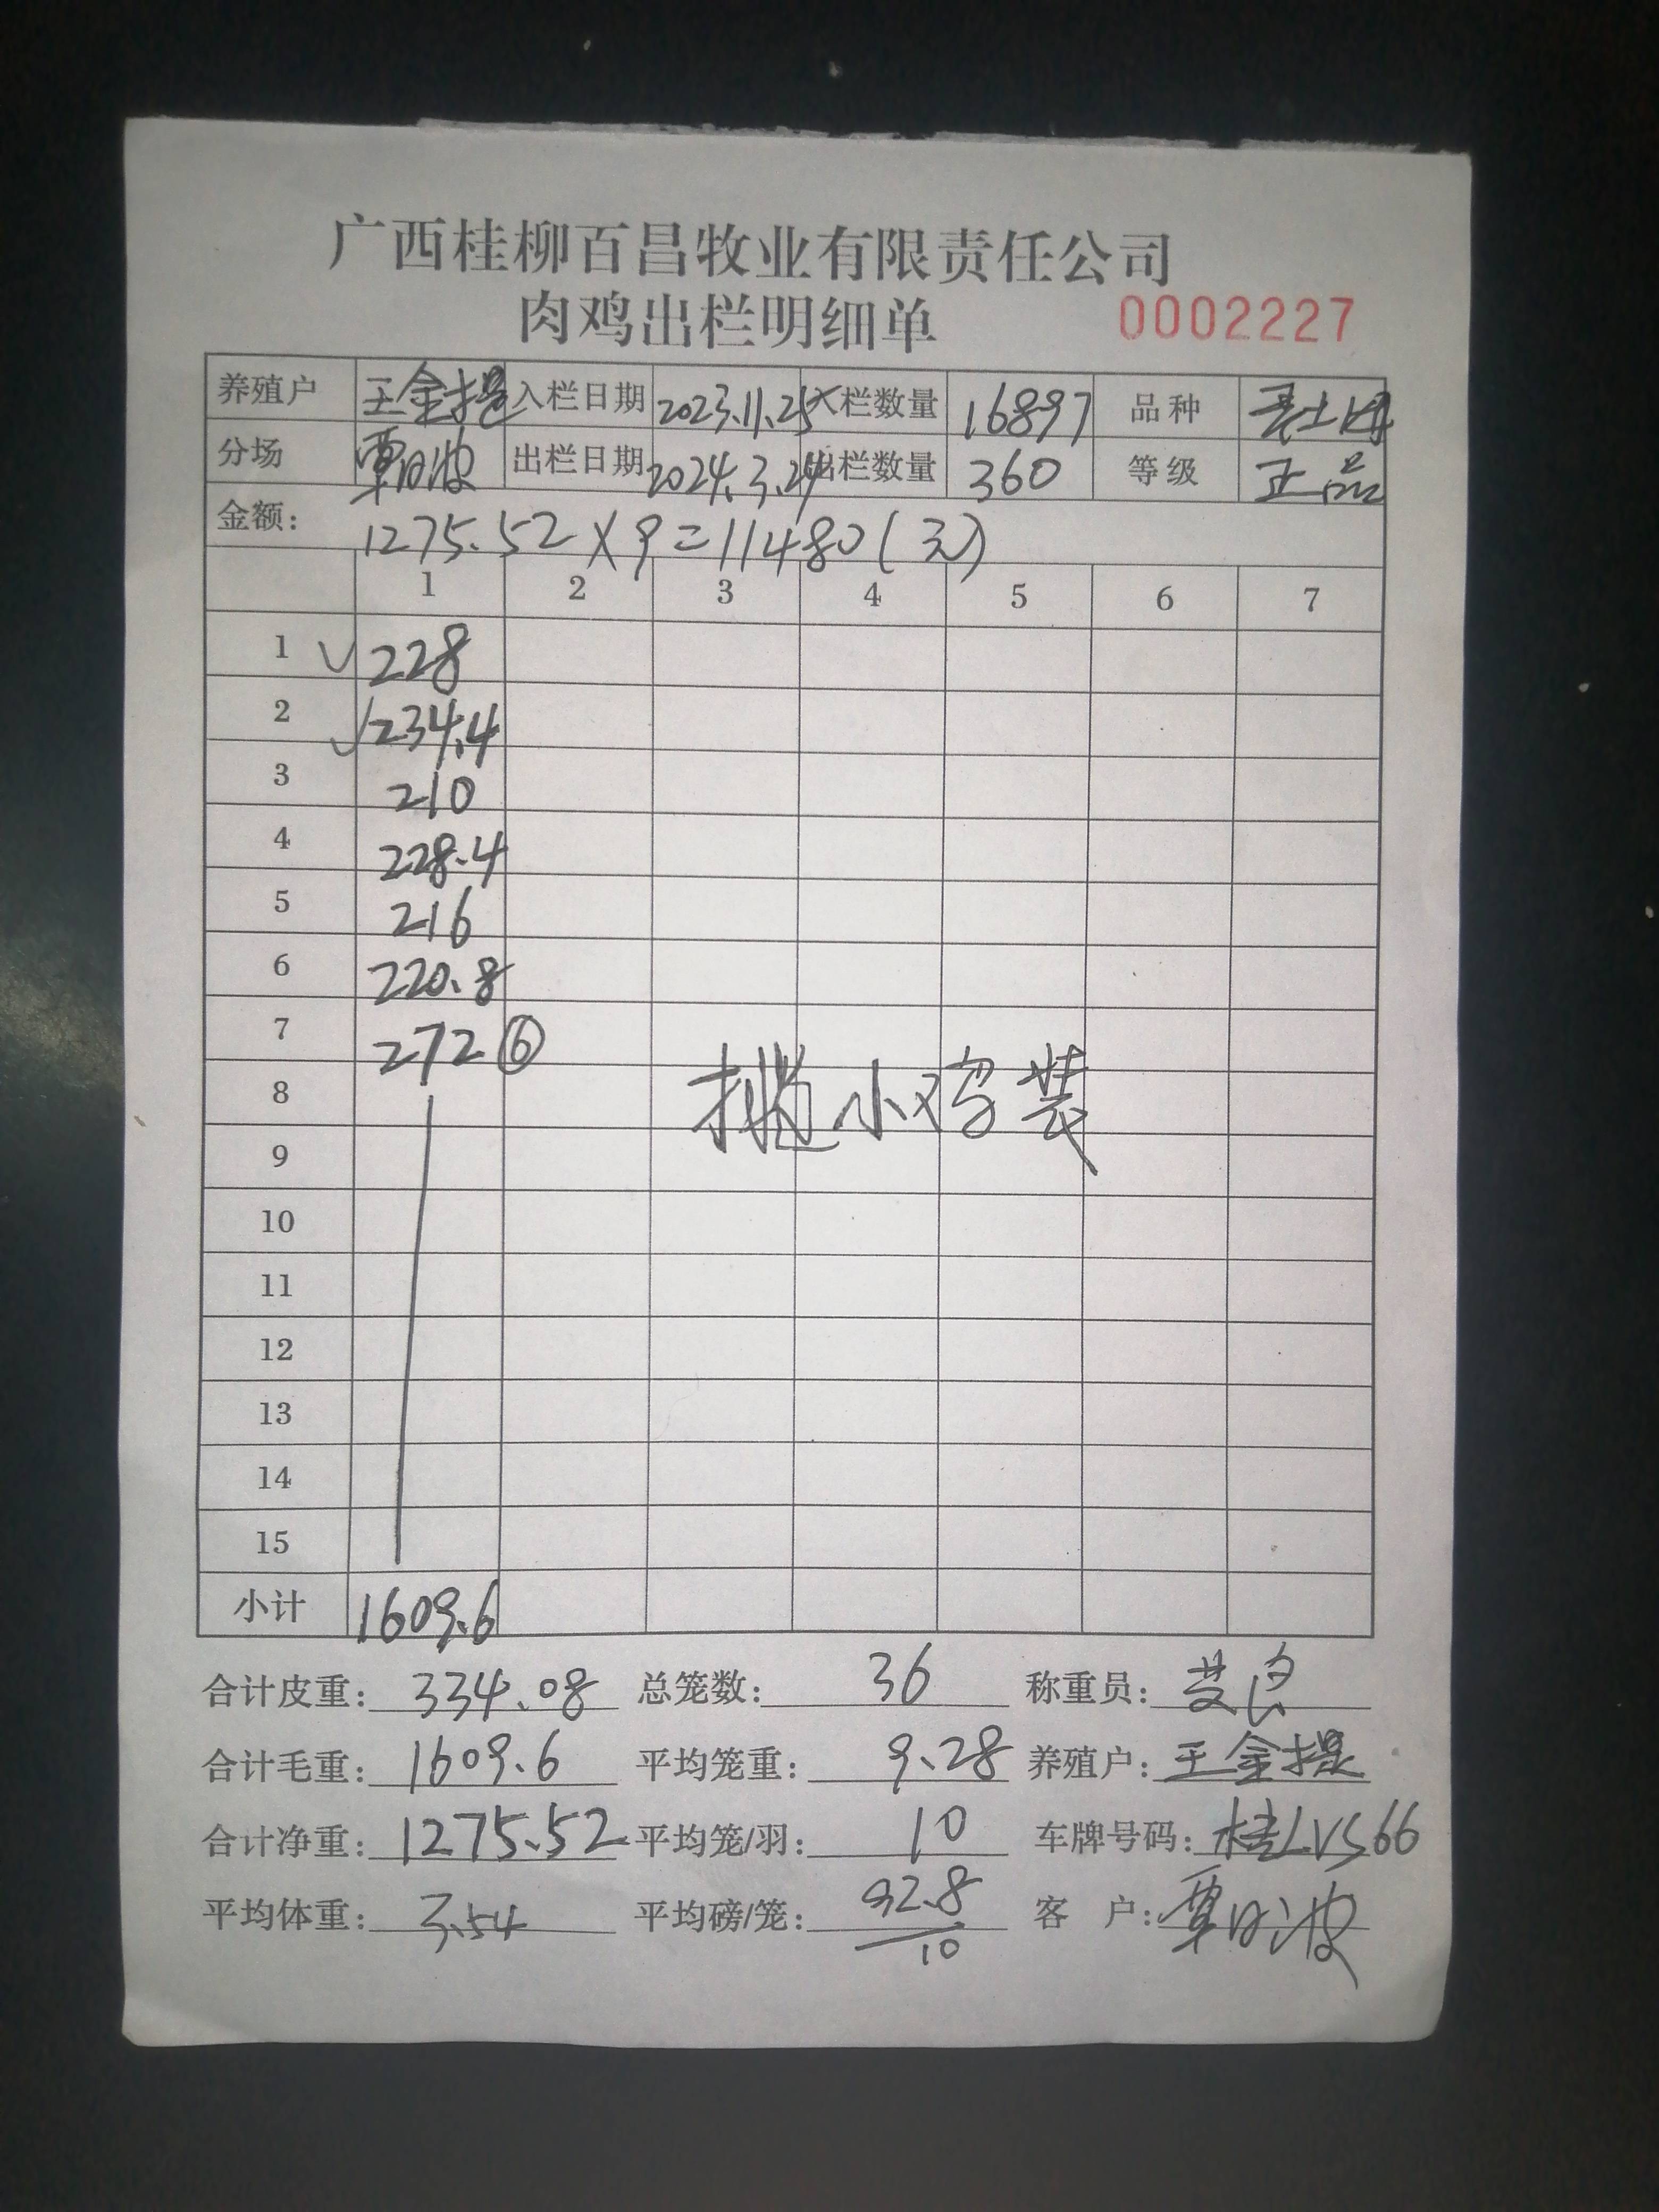 广西桂柳百昌牧业有限责任公司
肉鸡出栏明细单 0002227
养殖户 王金提 入栏日期 2023.11.25 入栏数量 16897 品种
分场 覃日波 出栏日期 2024.3.24 出栏数量 360 等级 正品
金额: 1275.52×9=11480(元)
1 2 3 4 5 6 7
1 228
2 234.4
3 210
4 228.4
5 216
6 220.8
7 272 ⑥
8 小鸡装
9
10
11
12
13
14
15
小计 1609.6
合计皮重: 334.08 总笼数: 36 称重员:
合计毛重: 1609.6 平均笼重: 9.28 养殖户: 王金提
合计净重: 1275.52 平均笼/羽: 10 车牌号码: 桂LVS66
平均体重: 3.54 平均磅/笼: 92.8/10 客 户: 覃日波